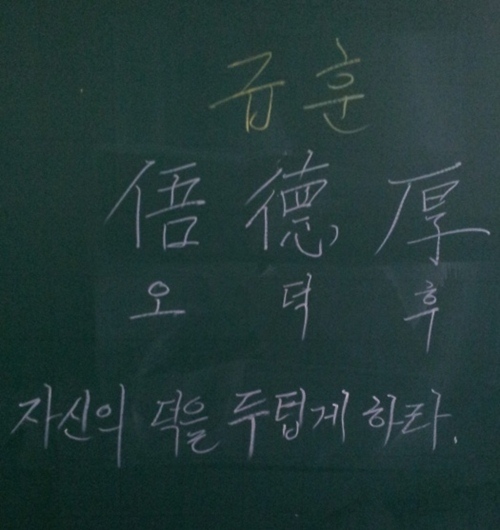 급훈
俉德厚
오 덕 후
자신의 덕을 두텁게 하라.